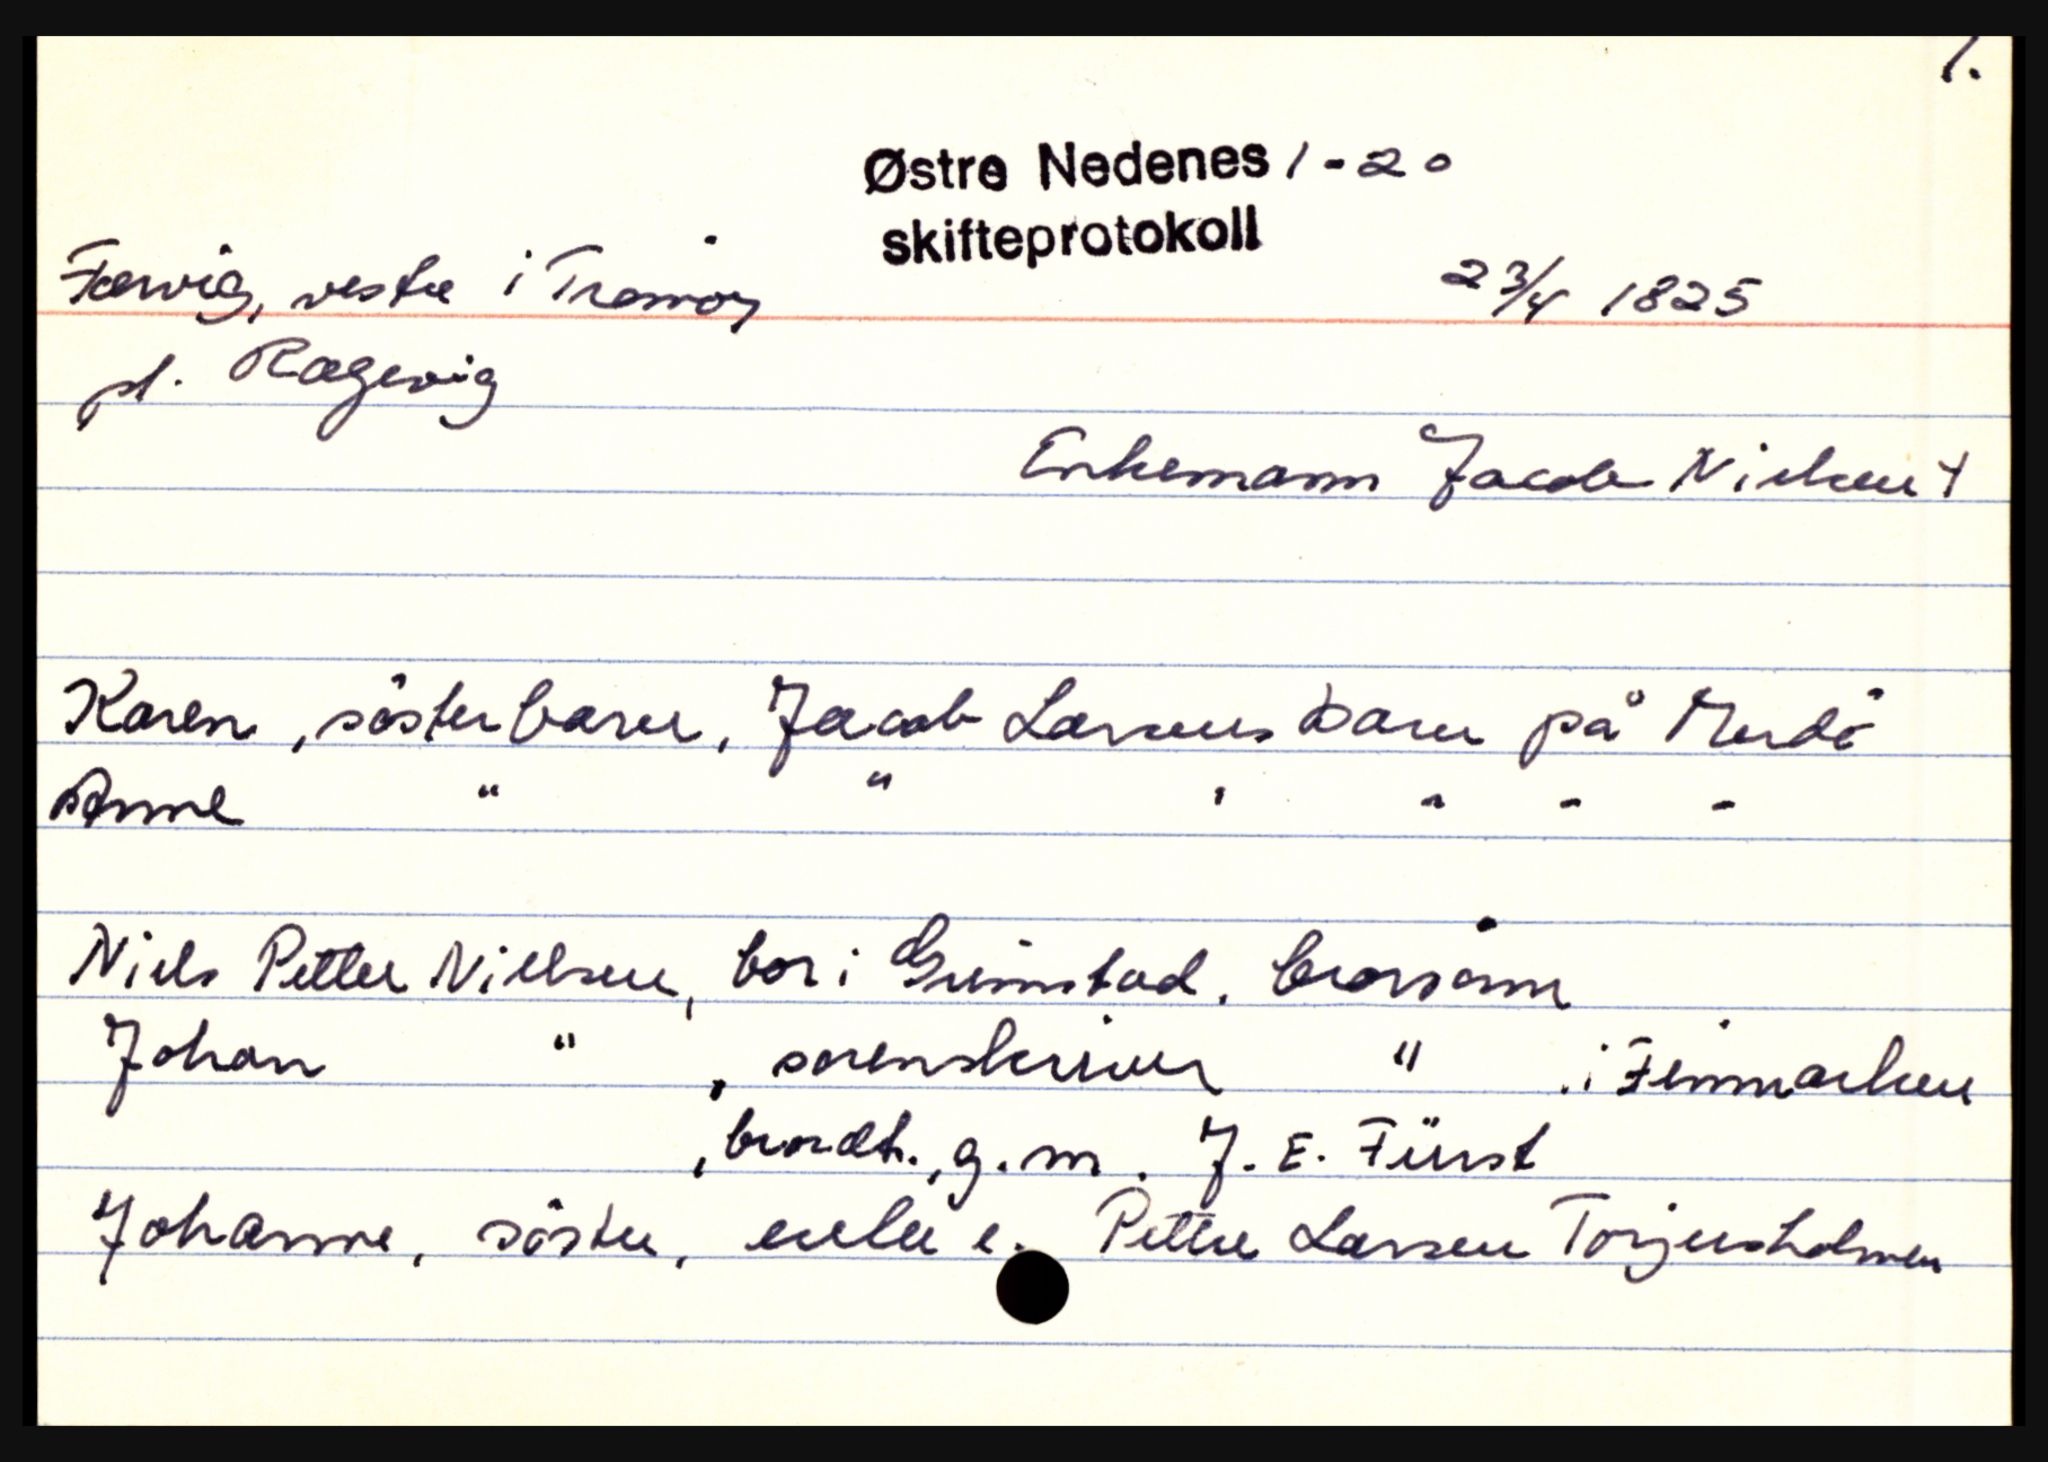 1.
Østre Nedenes 1-20
skifteprotokoll
Færvig, vestre i Tromöy 23/4 1825
pl. Rægevig
Enkemann Jacob Nielsen †
Karen, sösterbarn, Jacob Larsens barn på Merdö
Anne " " ' " - -
Niels Petter Nielsen, bor i Grimstad. brorsönn
Johan " , sorenskriver " . i Finmarken
, brordt., g.m. J. E. Fürst
Johanne, söster, enke e. Petter Larsen Torjusholmen